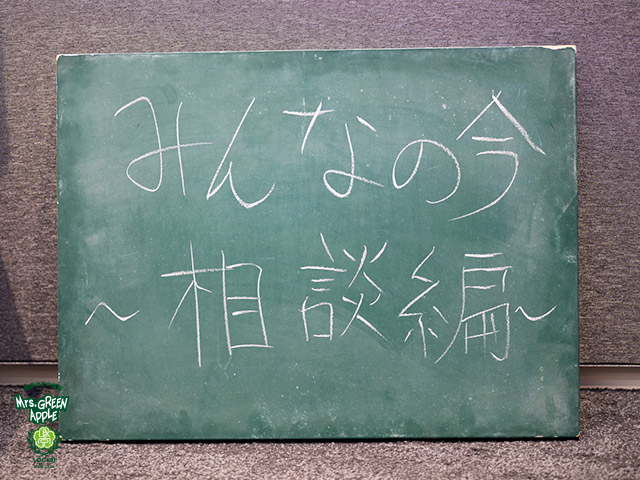 みんなの今
～相談編～
Mrs. GREEN
APPLE